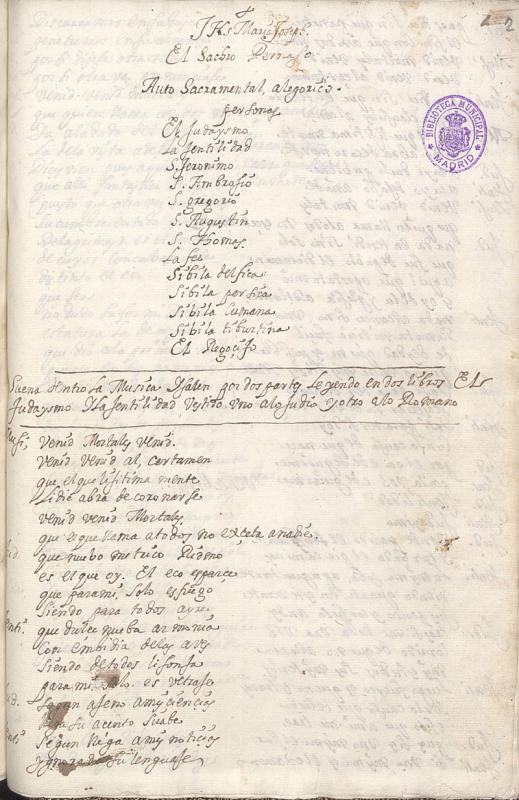 2
JHs Maria Joseph.
El Sacro Pernaso
Auto Sacramental, alegorico.
personas
El Judaysmo
La Jentilidad
S. Jeronimo
S. Ambrosio
S. gregorio
S. Augustin
S. Thomas.
La fee
Sibila delfica
Sibila persica
Sibila Cumana
Sibila tiburtina
EL Regocijo
BIBLIOTECA MUNICIPAL
MADRID
Suena dentro La Musica Ysalen por dos partes Leyendo en dos libros EL
Judaysmo YLa Jentilidad Vestido Uno alo Judio y otro alo Romano
Musi, Venid Mortales Venid.
Venid Venid al, certamen
que el que lijitima mente
Lidie abra de coronarse
Venid venid Mortales
que a que llama atodos no exceta anadie.
que nuebo metrico Ruido
es el que oy. El eco esparce
que parami Solo es fuego
Siendo para todos ayre
que dulce nueba armonia
Con embidia delas aves
Siendo de todos lisonja
para mi Solo. es Vltraje
Segun ajeno amys ciencias
Su acento Suabe
Segun Niega amys noticias
ygnorado Su lenguaje